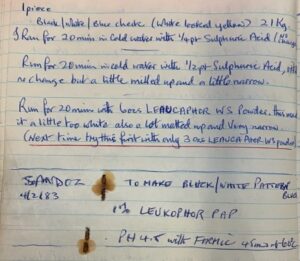 1 piece
Black/White/Blue checks (White looked yellow) 21Kg.
Run for 20 mins in Cold water with 1/4 pt Sulphuric Acid (No
Run for 20 mins in cold water with 1/2 pt Sulphuric Acid,
no change but a little milled up and a little narrow.
Run for 20 mins with 6ozs LEAUCAPHOR WS Powder, this made
it a little too white also a lot milled up and Very narrow
(Next time try this first with only 3 ozs LEAUCAPHOR WS powder)
SANDOZ TO MAKE BLACK/WHITE PATTERN
4/2/83
1% LEUKOPHOR PAP
PH 4.5 with FORMIC 45 mins at 60°C